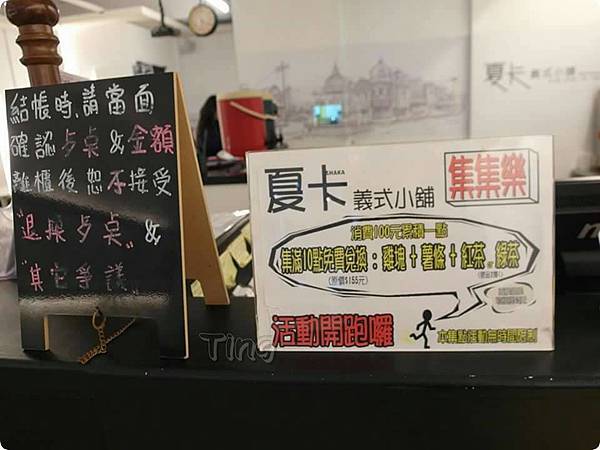 結帳時,請當面
確認歩桌&金額
離櫃後恕不接受
"退換歩桌"&
"其它爭議"
夏卡
SHAKA
義式小舖
集集樂
消費100元累積一點
集滿10點免費兌換:雞塊+薯條+紅茶.綠茶
(原價$155元)
活動開跑囉
本集點活動無時間限制
夏卡 義式小舖
Ting